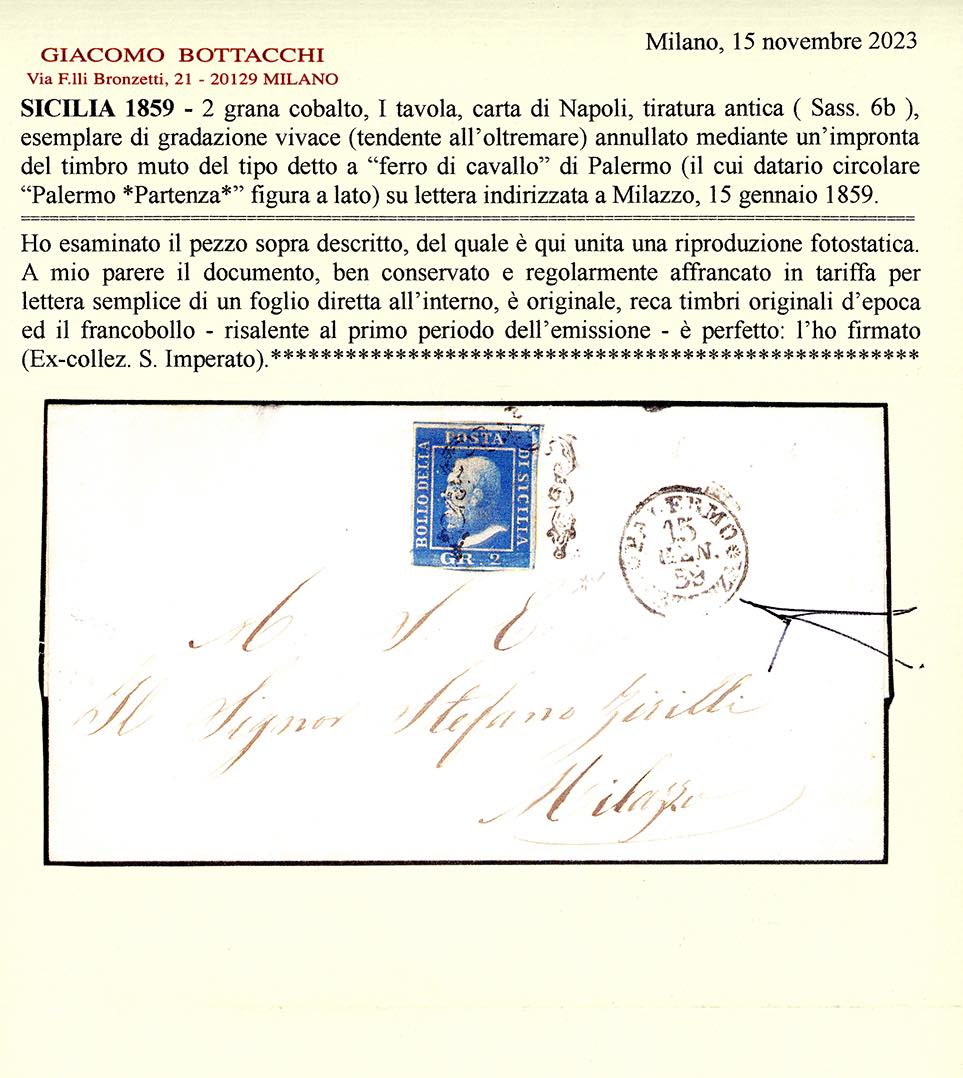 GIACOMO BOTTACCHI
Via F.lli Bronzetti, 21 - 20129 MILANO
Milano, 15 novembre 2023
SICILIA 1859 - 2 grana cobalto, I tavola, carta di Napoli, tiratura antica ( Sass. 6b ),
esemplare di gradazione vivace (tendente all’oltremare) annullato mediante un’impronta
del timbro muto del tipo detto a “ferro di cavallo” di Palermo (il cui datario circolare
“Palermo *Partenza*” figura a lato) su lettera indirizzata a Milazzo, 15 gennaio 1859.
Ho esaminato il pezzo sopra descritto, del quale è qui unita una riproduzione fotostatica.
A mio parere il documento, ben conservato e regolarmente affrancato in tariffa per
lettera semplice di un foglio diretta all’interno, è originale, reca timbri originali d’epoca
ed il francobollo - risalente al primo periodo dell’emissione - è perfetto: l’ho firmato
(Ex-collez. S. Imperato).****************************************************
BOLLO DELLA
POSTA
DI SICILIA
GR. 2
PALERMO
15
GEN.
59
A S E
Il Signor Stefano Zirilli
Milazzo